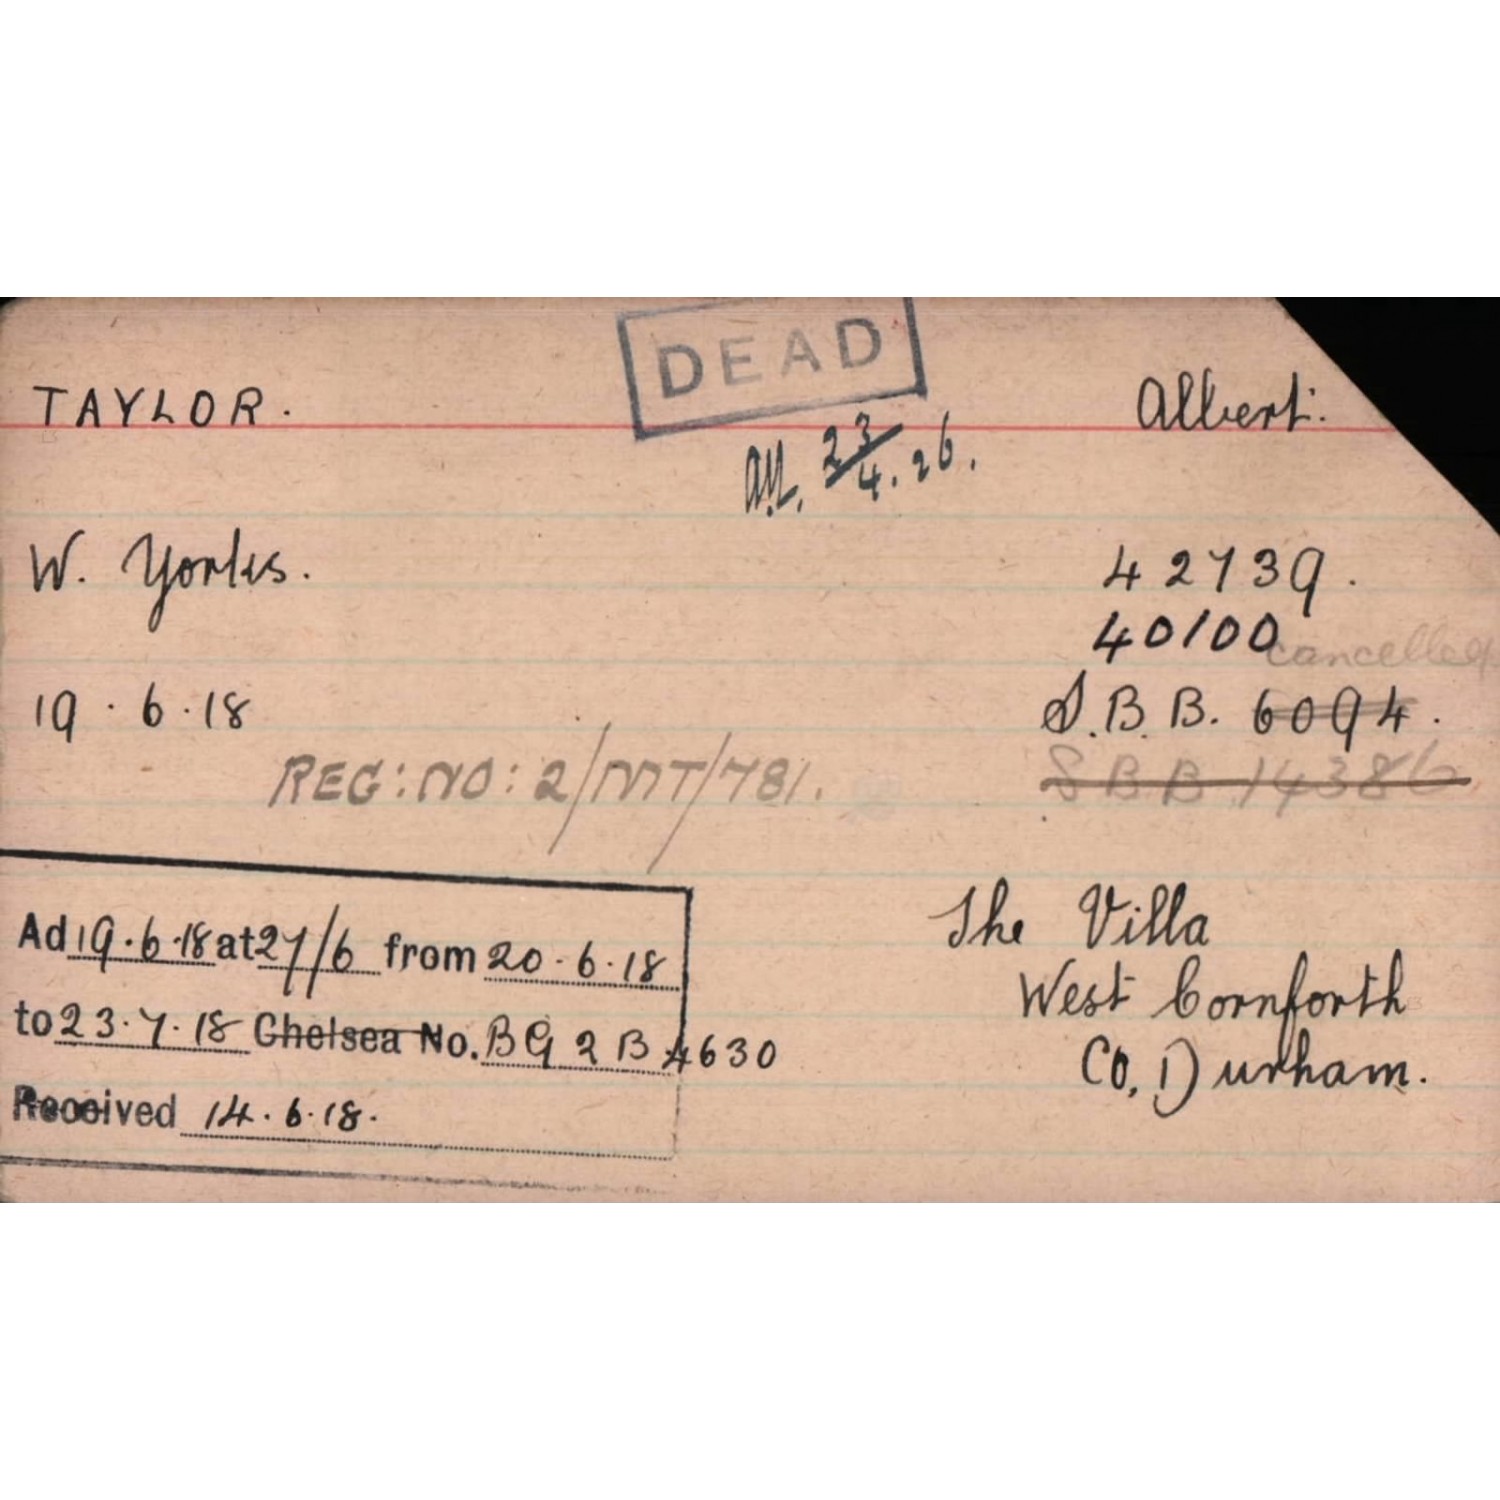 DEAD
TAYLOR. Albert.
23/4.26.
W. Yorks. 42739.
40100 cancelled
19.6.18 S.B.B. 6094.
REG:NO:2/MT/781. S B B 14386
Ad 19.6.18 at 27/6 from 20.6.18
to 23.7.18 Chelsea No. BG 2 B 4630
Received 14.6.18.
The Villa
West Cornforth
Co, Durham.